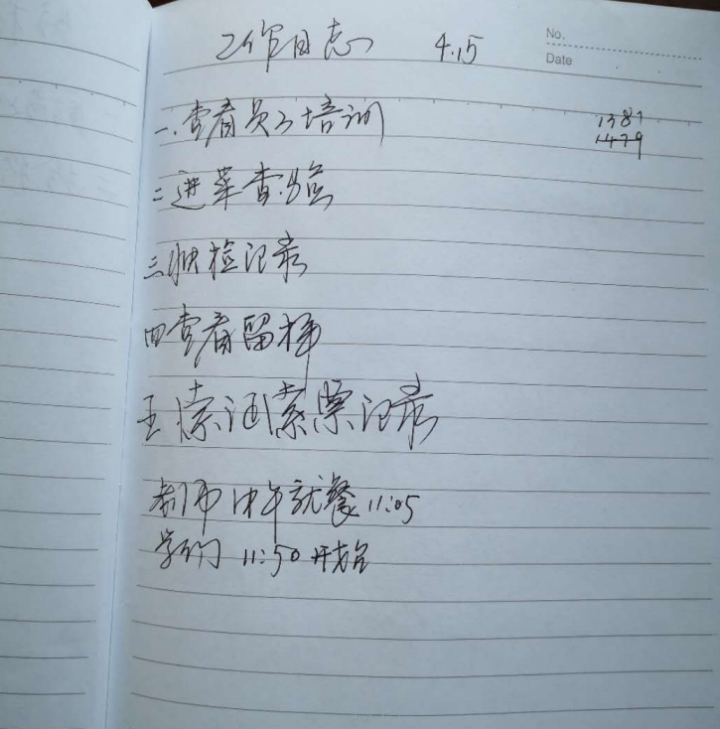 工作日志 4.15
No.
Date
1387
1479
一.查看员工培训
二进菜查验
三快检记录
四查看留样
五索证索票记录
教师中午就餐11:05
学生们 11:50开始